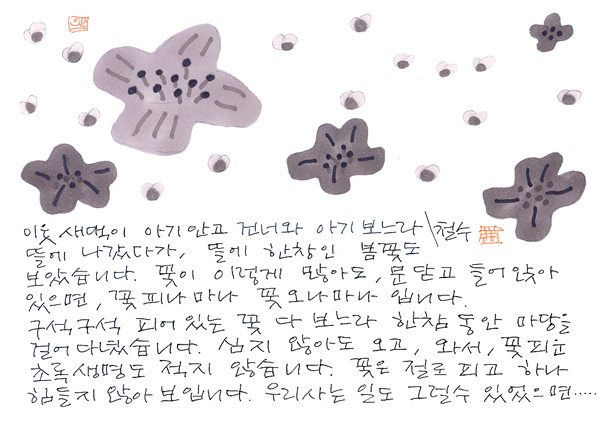 이웃 새댁이 아기 안고 건너와 아기 보느라
뜰에 나갔다가, 뜰에 한창인 봄꽃도
보았습니다. 꽃이 이렇게 많아도, 문 닫고 들어앉아
있으면, 꽃 피나마나 꽃 오나마나 입니다.
구석구석 피어있는 꽃 다 보느라 한참 동안 마당을
걸어 다녔습니다. 심지 않아도 오고, 와서, 꽃 피운
초록생명도 적지 않습니다. 꽃은 절로 피고 하나
힘들지 않아 보입니다. 우리사는 일도 그럴수 있었으면.....
철수